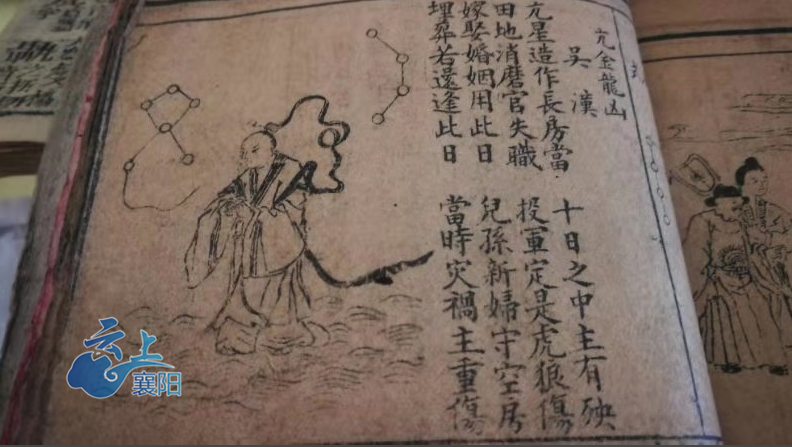 亢金龍凶
吳漢
亢星造作長房當 十日之中主有殃
田地消磨官失職 投軍定是虎狼傷
嫁娶婚姻用此日 兒孫新婦守空房
埋葬若還逢此日 當時灾禍主重傷
云上
襄阳